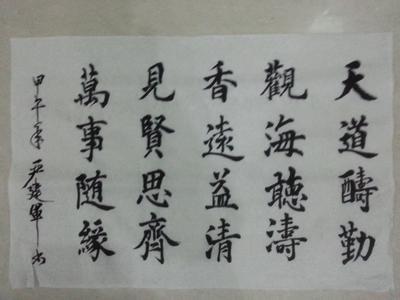 天道醻勤
觀海聽濤
香遠益清
見賢思齊
萬事随緣
甲午年 严建軍书